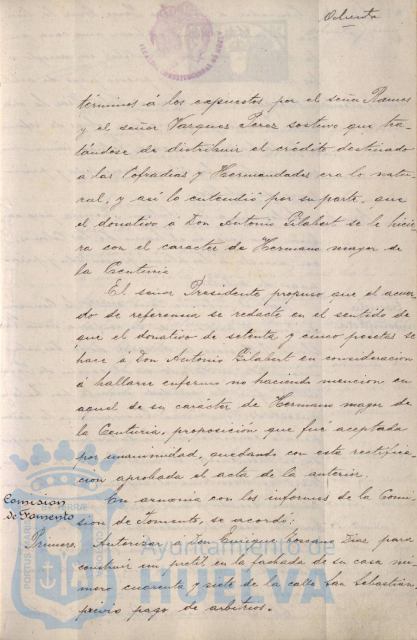 Ochenta
términos á los expuestos por el señor Ramos
y el señor Vazquez Perez sostuvo que tra
tándose de distribuir el crédito destinado
á las Cofradías y Hermandades era lo natu
ral, y así lo entendió por su parte, que
el donativo á Don Antonio Gilabert se le hicie
ra con el caracter de Hermano mayor de
la Centuria
El señor Presidente propuso que el acuer
do de referencia se redacte en el sentido de
que el donativo de setenta y cinco pesetas se
hace á Don Antonio Gilabert en consideracion
á hallarse enfermo no haciendo mencion en
aquel de su carácter de Hermano mayor de
la Centuria, proposición que fué aceptada
por unanimidad, quedando con esta rectifica
ción aprobada el acta de la anterior.
Comision
de Fomento
En armonia con los informes de la Comi
sion de Fomento, se acordó:
Primero. Autorizar á Don Enrique Toscano Diaz para
construir un pretil en la fachada de su casa nú
mero cuarenta y siete de la calle San Sebastián,
previo pago de arbitrios.
Ayuntamiento de
HUELVA